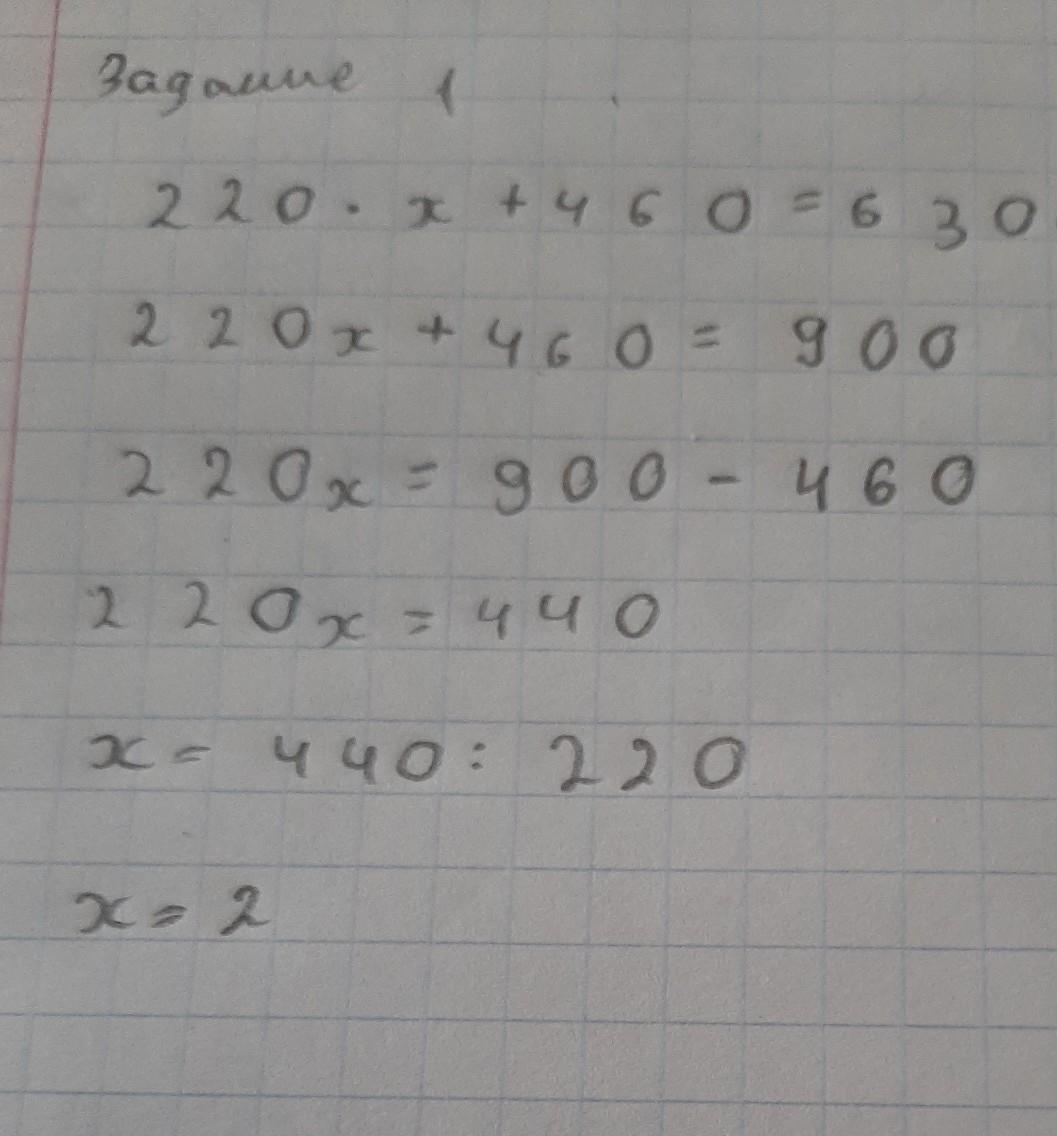 Задание 1
220 · x + 460 = 630
220x + 460 = 900
220x = 900 - 460
220x = 440
x = 440 : 220
x = 2